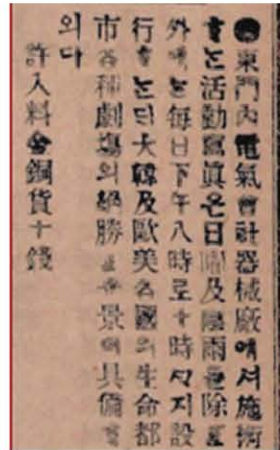 ●東門內電氣會社器械廠에셔施術
ᄒᆞᄂᆞᆫ活動寫眞은日曜及陰雨를除ᄒᆞᆫ
外에ᄂᆞᆫ每日下午八時로十時ᄭᆞ지設
行ᄒᆞᄂᆞᆫᄃᆡ大韓及歐美各國의生命都
市各種劇場의絕勝ᄒᆞᆫ光景이具備ᄒᆞ
외다
許入料金銅貨十錢